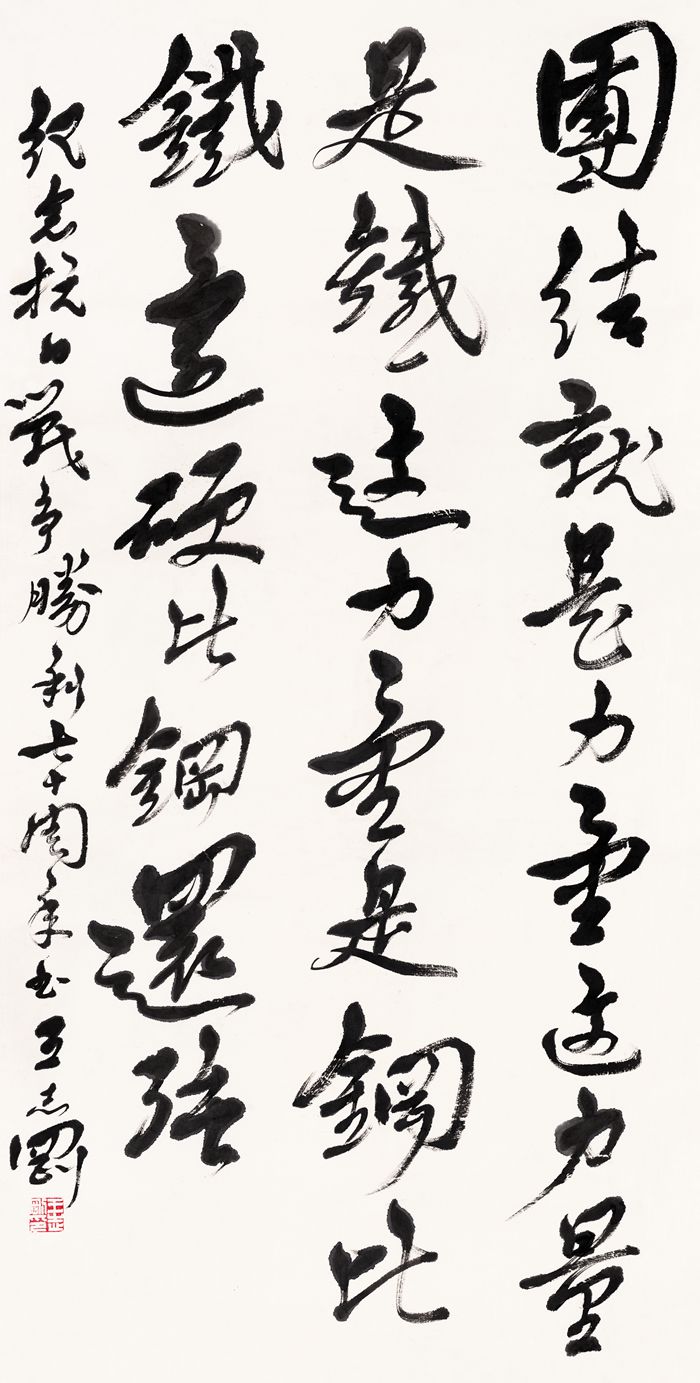 團結就是力量这力量
是鐵這力量是鋼比
鐵還硬比鋼還強
紀念抗日戰爭勝利七十周年书王志剛